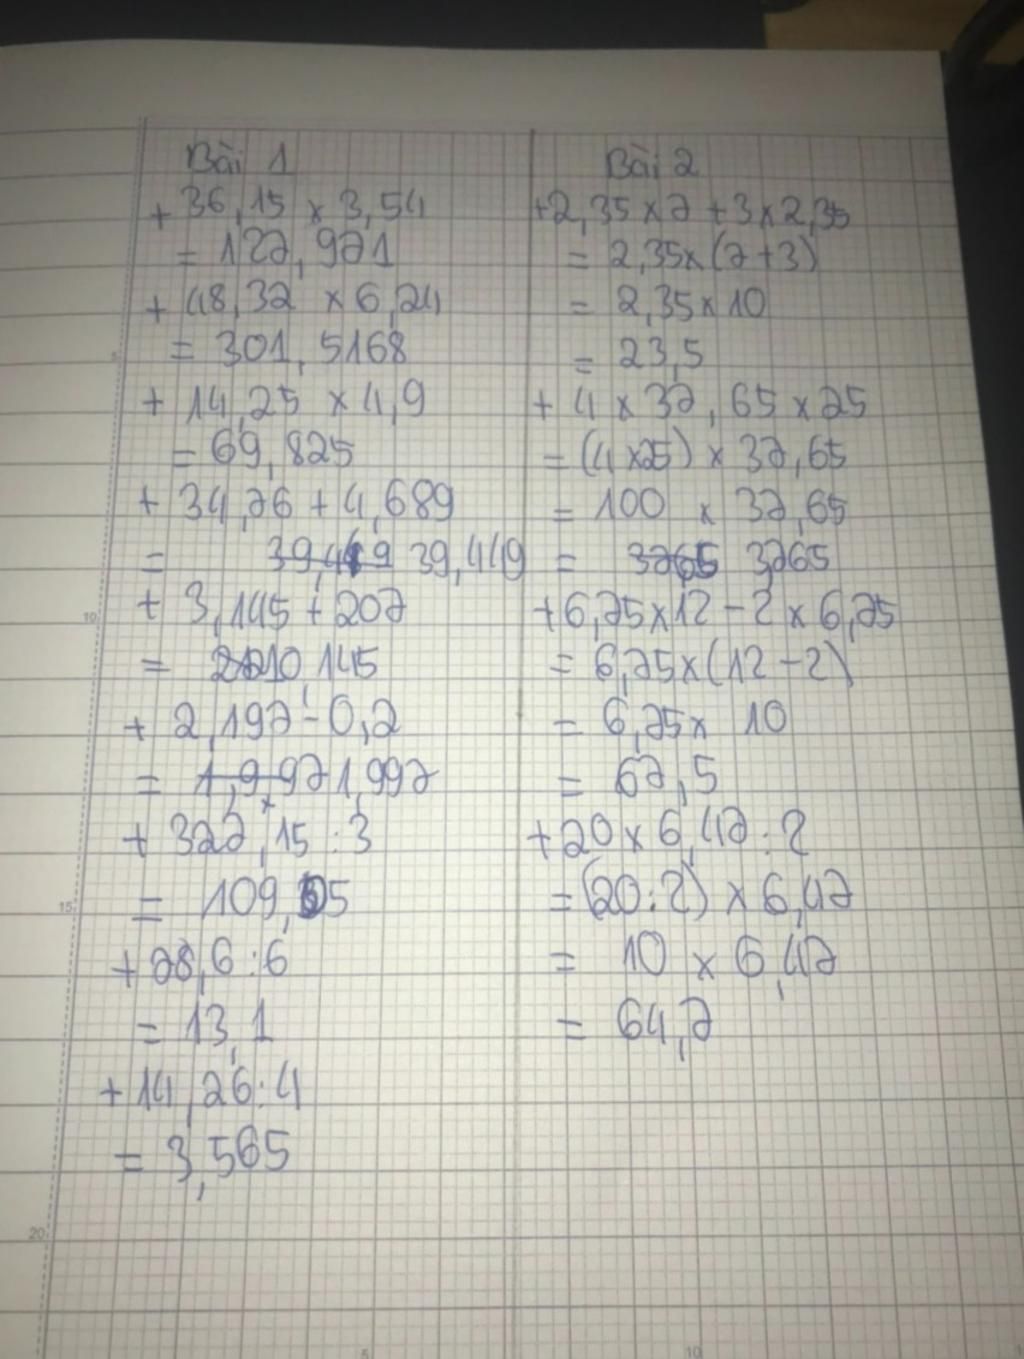 Bài 1
+ 36,15 x 3,54
= 127,971
+ 48,32 x 6,24
= 301,5168
+ 14,25 x 4,9
= 69,825
+ 34,76 + 4,689
= 39,449
+ 3,145 + 207
= 210,145
+ 2,197 - 0,2
= 1,997
+ 327,15 : 3
= 109,05
+ 78,6 : 6
= 13,1
+ 14,26 : 4
= 3,565
Bài 2
+ 2,35 x 7 + 3 x 2,35
= 2,35 x (7 + 3)
= 2,35 x 10
= 23,5
+ 4 x 37,65 x 25
= (4 x 25) x 37,65
= 100 x 37,65
= 3765
+ 6,75 x 12 - 2 x 6,75
= 6,75 x (12 - 2)
= 6,75 x 10
= 67,5
+ 20 x 6,47 : 2
= (20 : 2) x 6,47
= 10 x 6,47
= 64,7